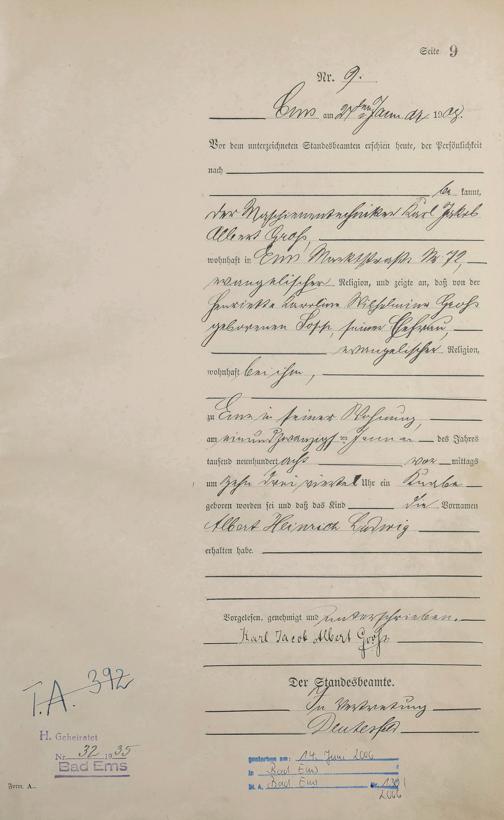 Seite 9
Nr. 9.
Ems am 27ten Januar 1908.
Vor dem unterzeichneten Standesbeamten erschien heute, der Persönlichkeit
nach
be kannt,
der Maschinentechniker Karl Jakob
Albert Groß,
wohnhaft in Ems Marktstraße Nr. 72,
evangelischer Religion, und zeigte an, daß von der
Henriette Karoline Wilhelmine Groß
geborenen, seiner Ehefrau,
evangelischer Religion,
wohnhaft bei ihm,
zu Ems in seiner Wohnung,
am einundzwanzigsten Januar des Jahres
tausend neunhundert acht vor mittags
um zehn drei viertel Uhr ein Knabe
geboren worden sei und daß das Kind die Vornamen
Albert Heinrich Ludwig
erhalten habe.
Vorgelesen, genehmigt und unterschrieben.
Karl Jacob Albert Groß
Der Standesbeamte.
In Vertretung
T.A. 392
H. Geheiratet
Nr. 32 1935
Bad Ems
gestorben am: 14. Juni 2006
in Bad Ems
St. A. Bad Ems Nr. 130/
2006
Form. A.